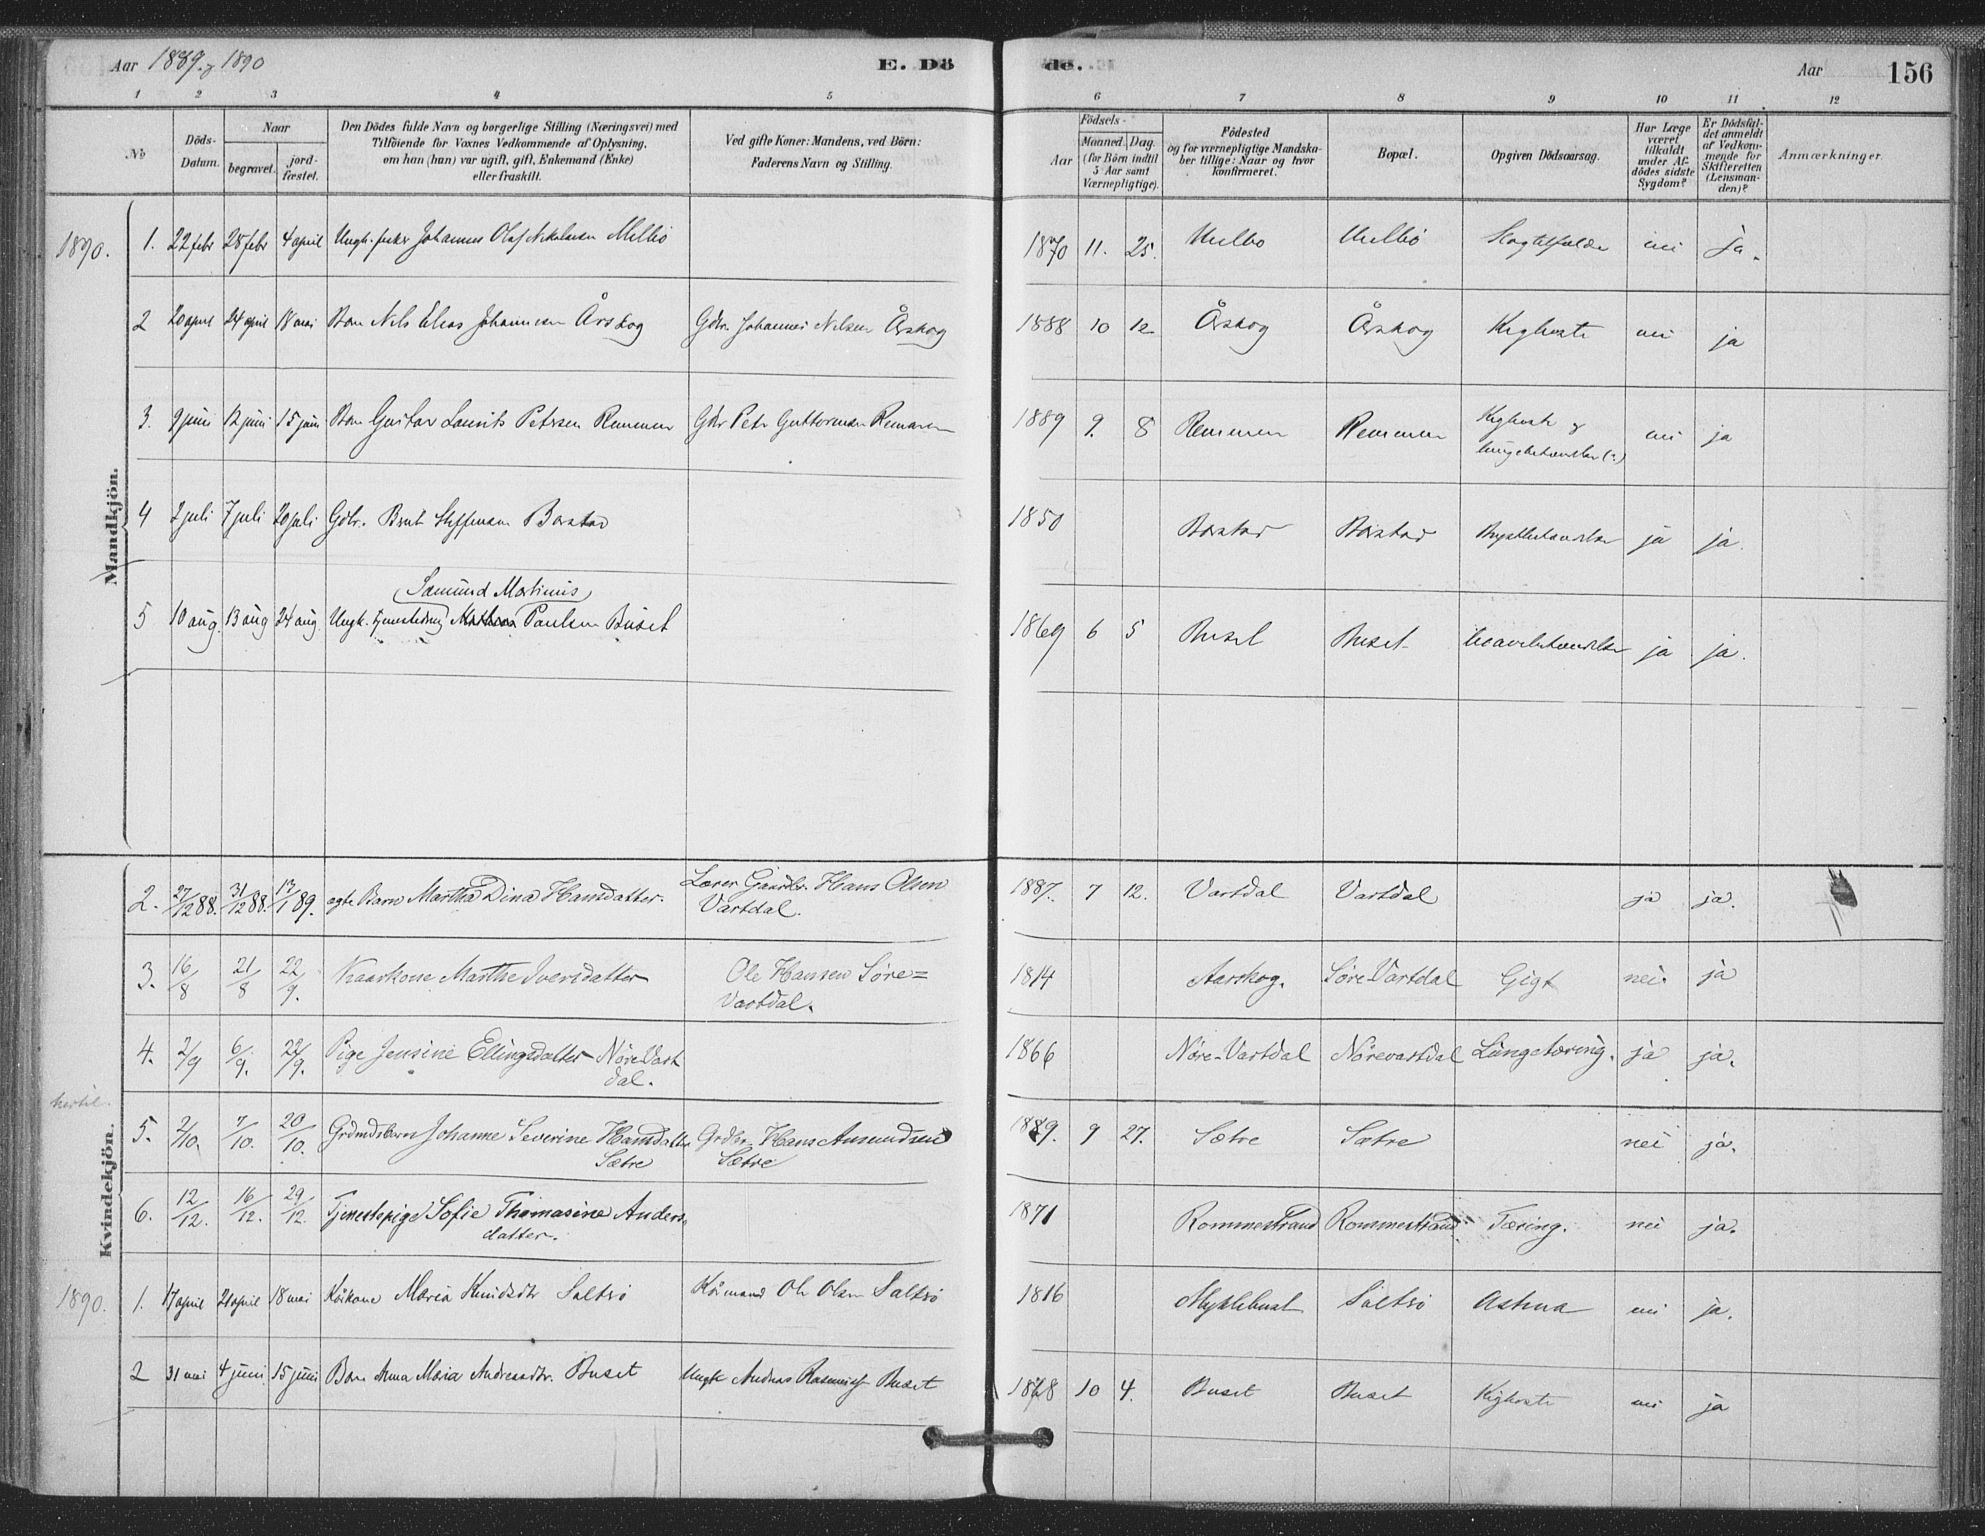 Aar 1889. og 1890 E. Dö de. Aar 156
1 2 3 4 5 6 7 8 9 10 11 12
No
Döds-
Datum.
Naar
begravet.
jord-
fæstet.
Den Dödes fulde Navn og borgerlige Stilling (Næringsvei) med
Tilföiende for Voxnes Vedkommende af Oplysning,
om han (hun) var ugift, gift, Enkemand (Enke)
eller fraskilt.
Ved gifte Koner: Mandens, ved Börn:
Faderens Navn og Stilling.
Födsels-
Aar
Maaned. Dag.
(for Börn indtil
5 Aar samt
Værnepligtige).
Födested
og for værnepligtige Mandska-
ber tillige: Naar og hvor
konfirmeret.
Bopæl.
Opgiven Dödsaarsag.
Har Læge
været
tilkaldt
under Af-
dödes sidste
Sygdom?
Er Dödsfal-
det anmeldt
af Vedkom-
mende for
Skifteretten
(Lensman-
den)?
Anmærkninger.
Mandkjön.
1890. 1. 22 febr 28 febr 4 april Ungk. fisker Johannes Olaf Nikolaisen Melbö 1870 11. 25. Melbo Melbö nei ja.
2 20 april 24 april 18 mai Barn Nils Elias Johannesen Årskog Gdbr. Johannes Nilsen Årskog 1888 10 12 Årskog Årskog Kighoste nei ja
3. 9 juni 12 juni 15 juni Barn Gustav Laurits Petersen Remmen Gdbr Peter Guttormsen Remmen 1889 9. 8 Remmen Remmen Kighoste og
lungebetændelse (?) nei ja
4 2 juli 7 juli 20 juli Gdbr. Bernt Steffensen Barstad 1850 Barstad Barstad Brystbetændelse ja ja.
Samund Martinus
5 10 aug. 13 aug 24 aug Ungk. tjenestedreng Paulsen Buset 1869 6 5 Buset Buset ja ja.
Kvindekjön.
2. 27/12 88. 31/12 88. 13/1 89. ægte Barn Martha Dina Hansdatter. Lærer Gaardbr. Hans Olsen
Vartdal. 1887. 7 12. Vartdal Vartdal ja ja.
3. 16/8 21/8 22/9. Kaarkone Marthe Iversdatter Ole Hansen Søre=
Vartdal. 1814 Aarskog. Søre-Vartdal Gigt nei. ja
4. 2/9 6/9. 22/9. Pige Jensine Ellingsdatter Nøre Vart
dal. 1866 Nøre-Vartdal Nørevartdal Lungetæring. ja ja.
hertil.
5. 2/10. 7/10. 20/10. Grdmdsbarn Johanne Severine Hansdatter
Sætre Grdbr. Hans Amundsen
Sætre 1889. 9 27. Sætre Sætre nei ja.
6. 12/12. 16/12. 29/12. Tjenestepige Sofie Thomasine Anders-
datter. 1871 Rommestrand Rommestrand Tæring. nei ja.
1890. 1. 17 april 21 april 18 mai Kårkone Maria Knudsdtr Saltrø Kårmand Ole Olsen Saltrø 1816 Myklebust Saltrö Asthma nei ja.
2 31 mai 4 juni 15 juni Barn Anna Maria Andreasdtr. Buset Ungk Andreas Rasmus Buset 1888 10 4. Buset Buset Kighoste nei ja